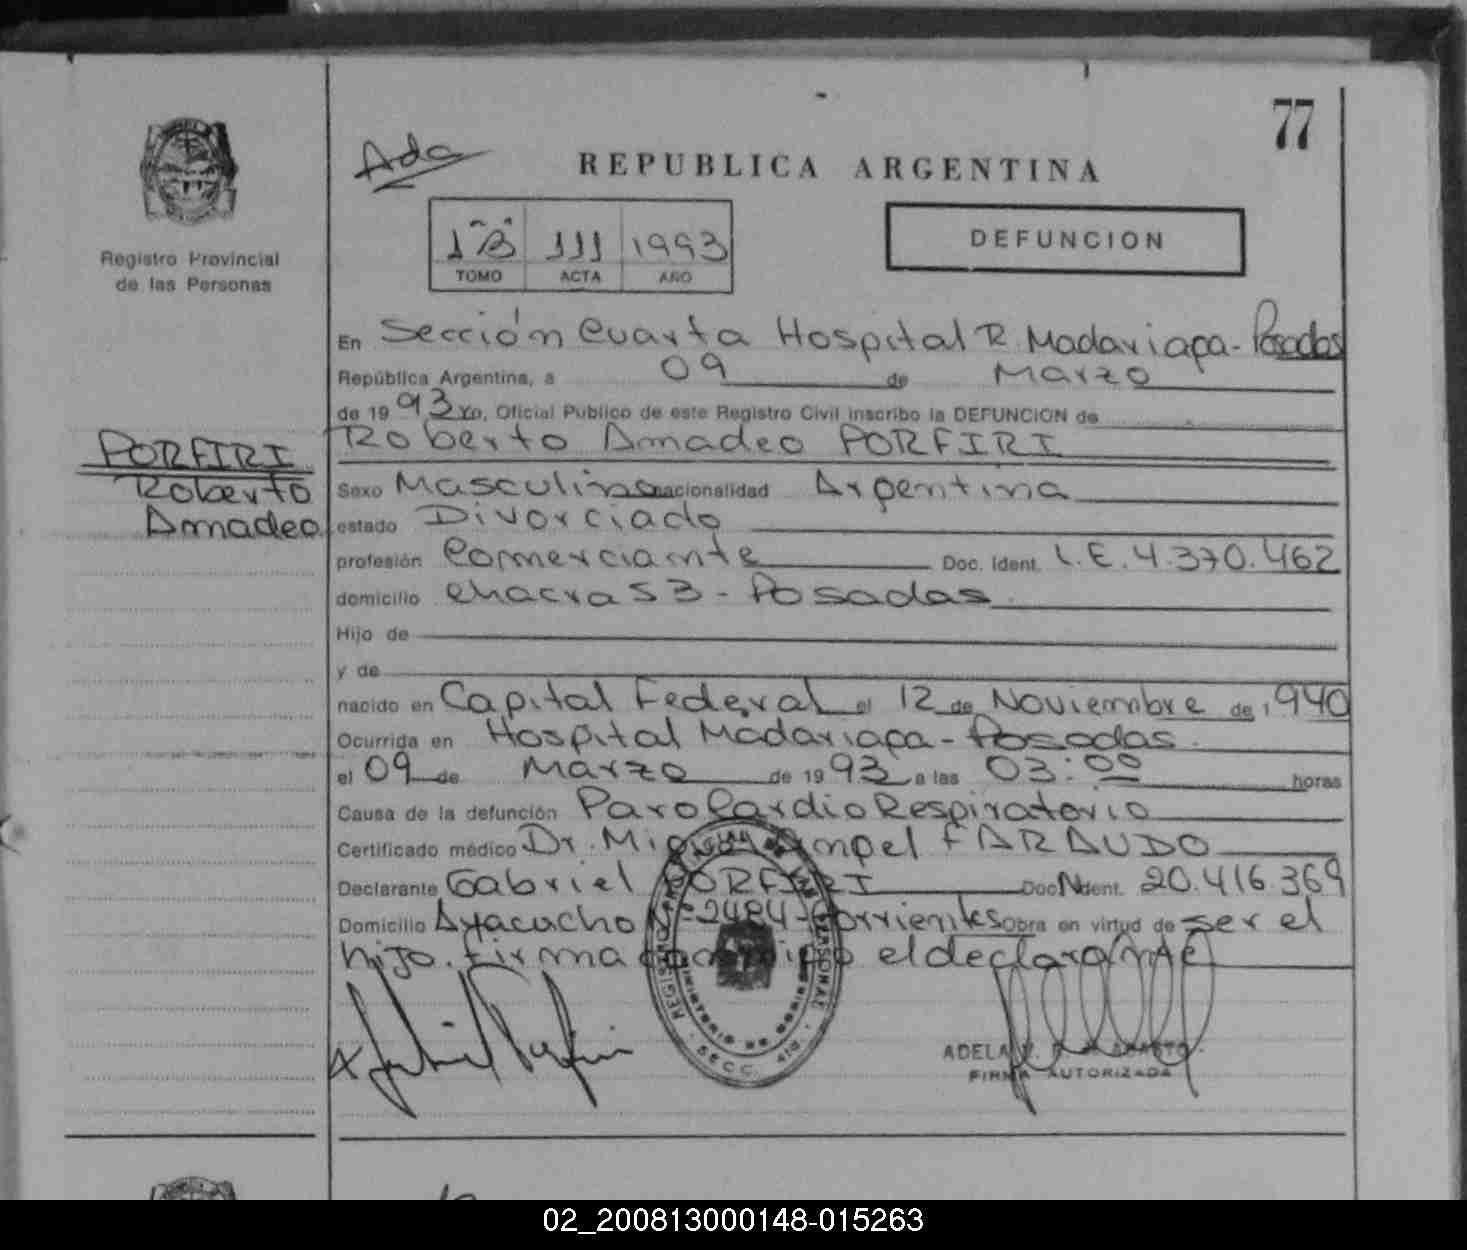 77
Ada
REPUBLICA ARGENTINA
Registro Provincial
de las Personas
1º B 111 1993
TOMO ACTA AÑO
DEFUNCION
En Sección Cuarta Hospital R. Madariaga - Posadas
República Argentina, a 09 de Marzo
de 1993 yo, Oficial Público de este Registro Civil inscribo la DEFUNCION de
Roberto Amadeo PORFIRI
PORFIRI
Roberto
Amadeo
Sexo Masculino nacionalidad Argentina
estado Divorciado
profesión Comerciante Doc. Ident. L.E. 4.370.462
domicilio Chacra 53 - Posadas
Hijo de
y de
nacido en Capital Federal el 12 de Noviembre de 1940
Ocurrida en Hospital Madariaga - Posadas
el 09 de Marzo de 1993 a las 03:00 horas
Causa de la defunción Paro Cardio Respiratorio
Certificado médico Dr. Miguel Angel FARAUDO
Declarante Gabriel PORFIRI Doc. Ident. 20.416.369
Domicilio Ayacucho Nº 2484 - Corrientes Obra en virtud de ser el
hijo. Firma conmigo el declarante
REGISTRO PROVINCIAL DE LAS PERSONAS
MINISTERIO DE GOBIERNO
SECC. 4ta.
ADELA
FIRMA AUTORIZADA
02_200813000148-015263